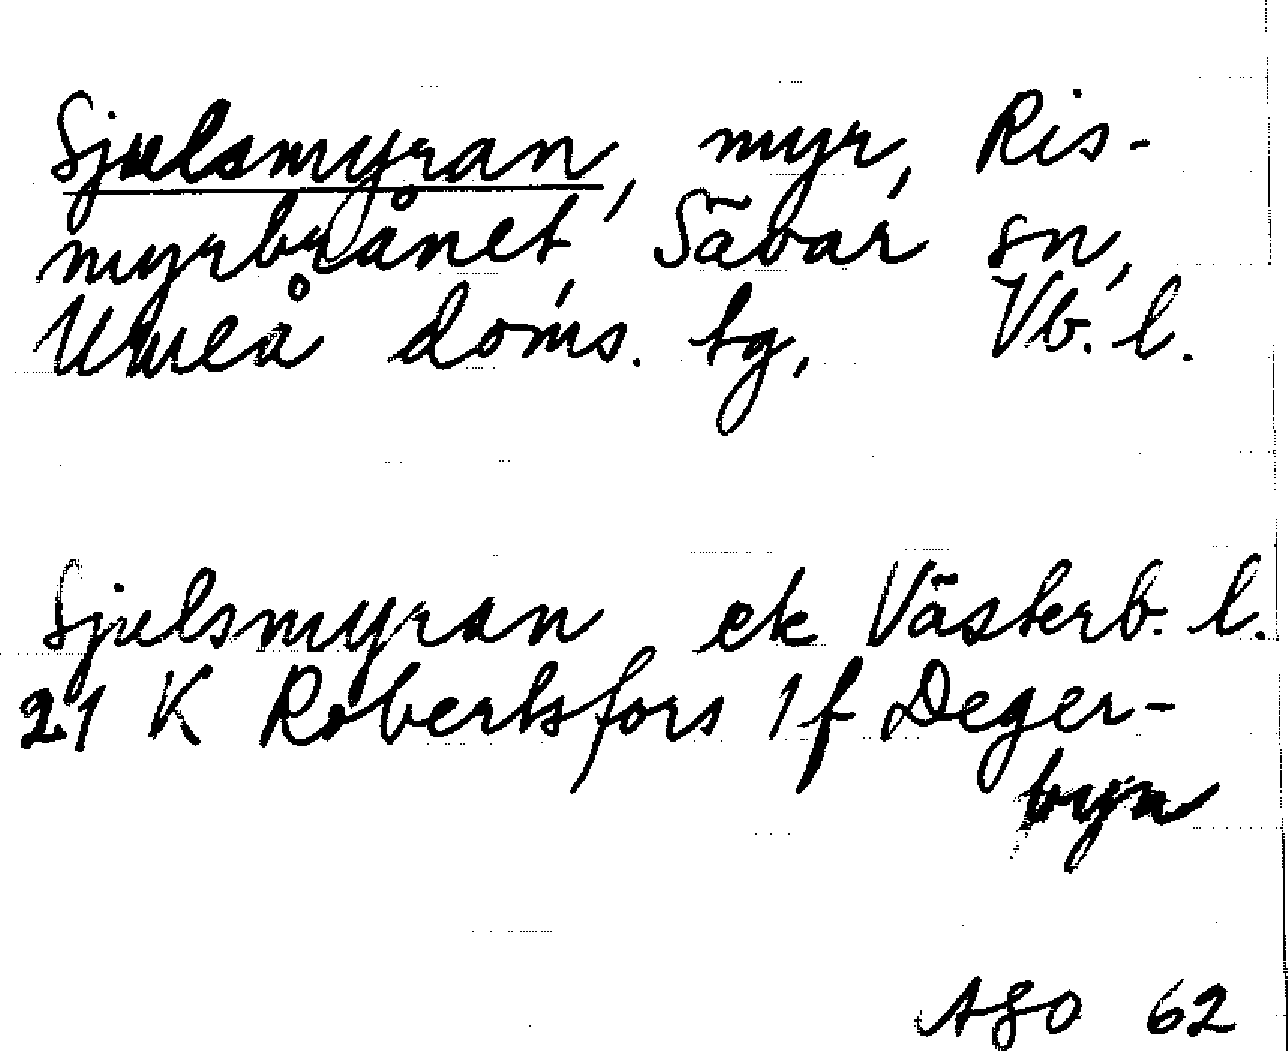 Sjulsmyran, myr, Ris-
myrbrånet, Sävar sn,
Umeå doms. tg, Vb. l.
Sjulsmyran ek Västerb. l.
21 K Robertsfors 1 f Deger-
byn
ASO 62